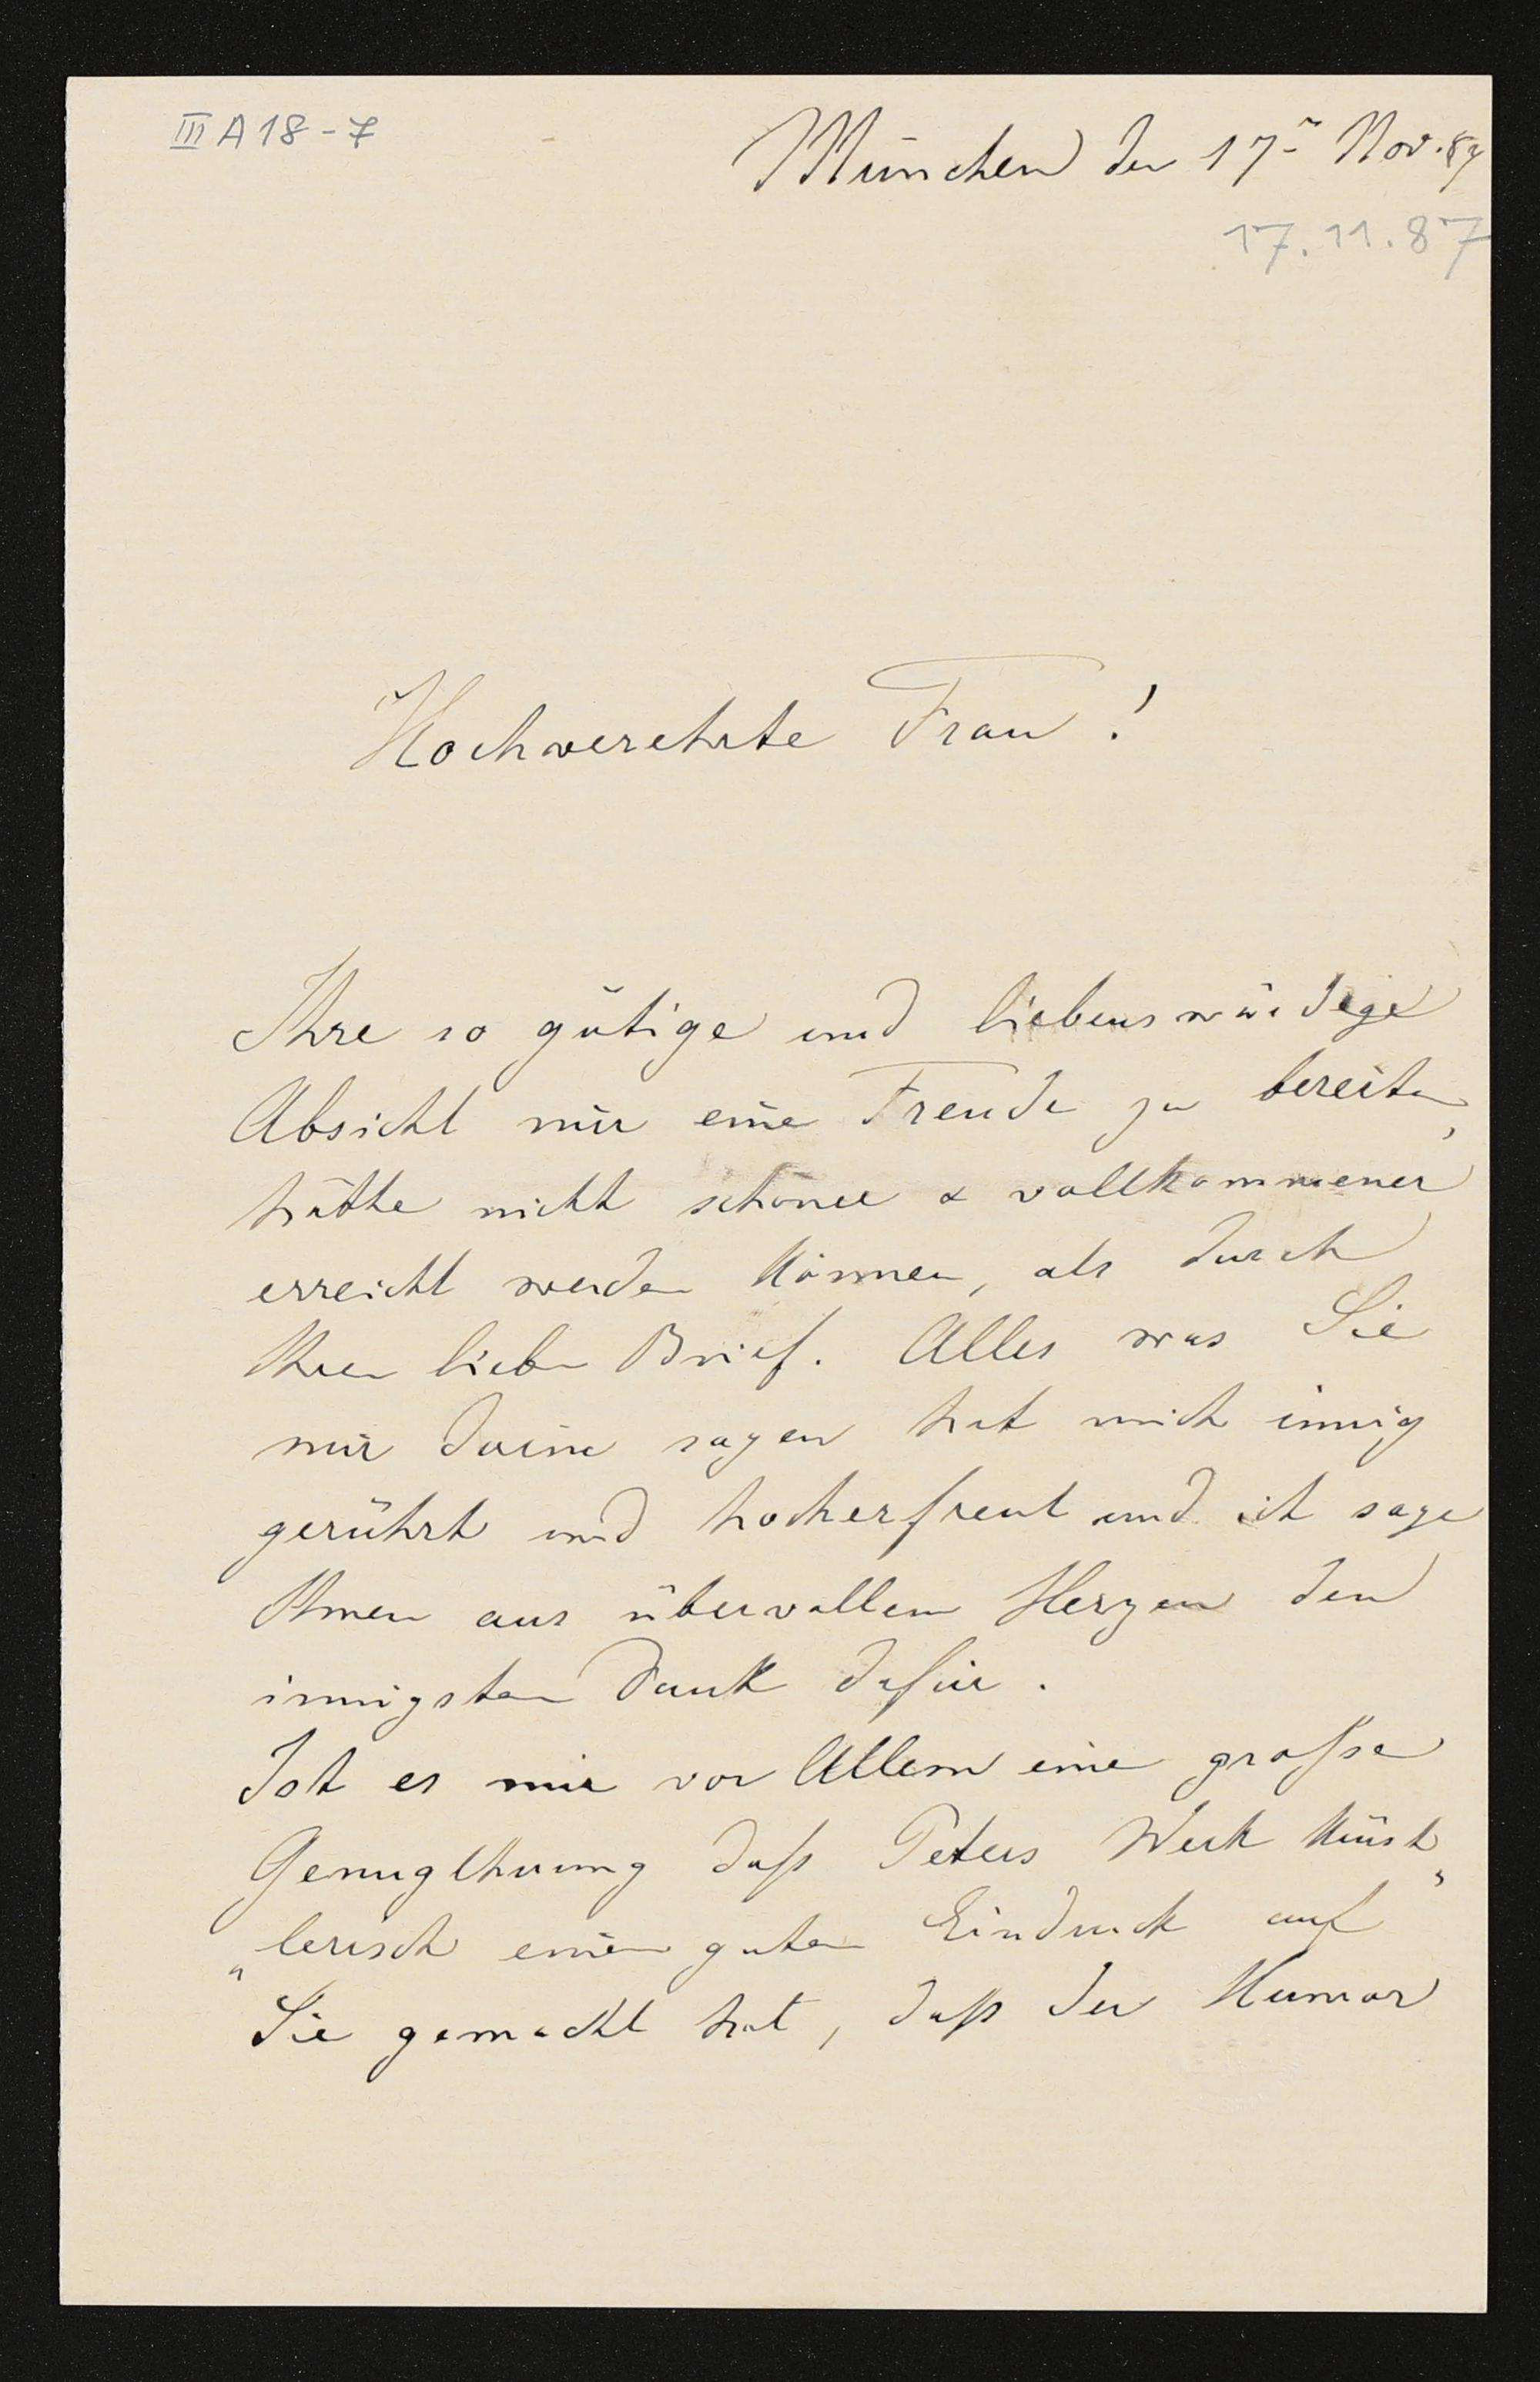 III A 18-7
München den 17ⁿ Nov. 87
17.11.87
Hochverehrte Frau!
Ihre so gütige und liebenswürdige
Absicht mir eine Freude zu bereiten,
hätte nicht schöner & vollkommener
erreicht werden können, als durch
Ihren lieben Brief. Alles was Sie
mir darin sagen hat mich innig
gerührt und hocherfreut und ich sage
Ihnen aus übervollem Herzen den
innigsten Dank dafür.
Ist es mir vor Allem eine große
Genugthuung daß Peters Werk künst„
„lerisch einen guten Eindruck auf
Sie gemacht hat, daß der Humor